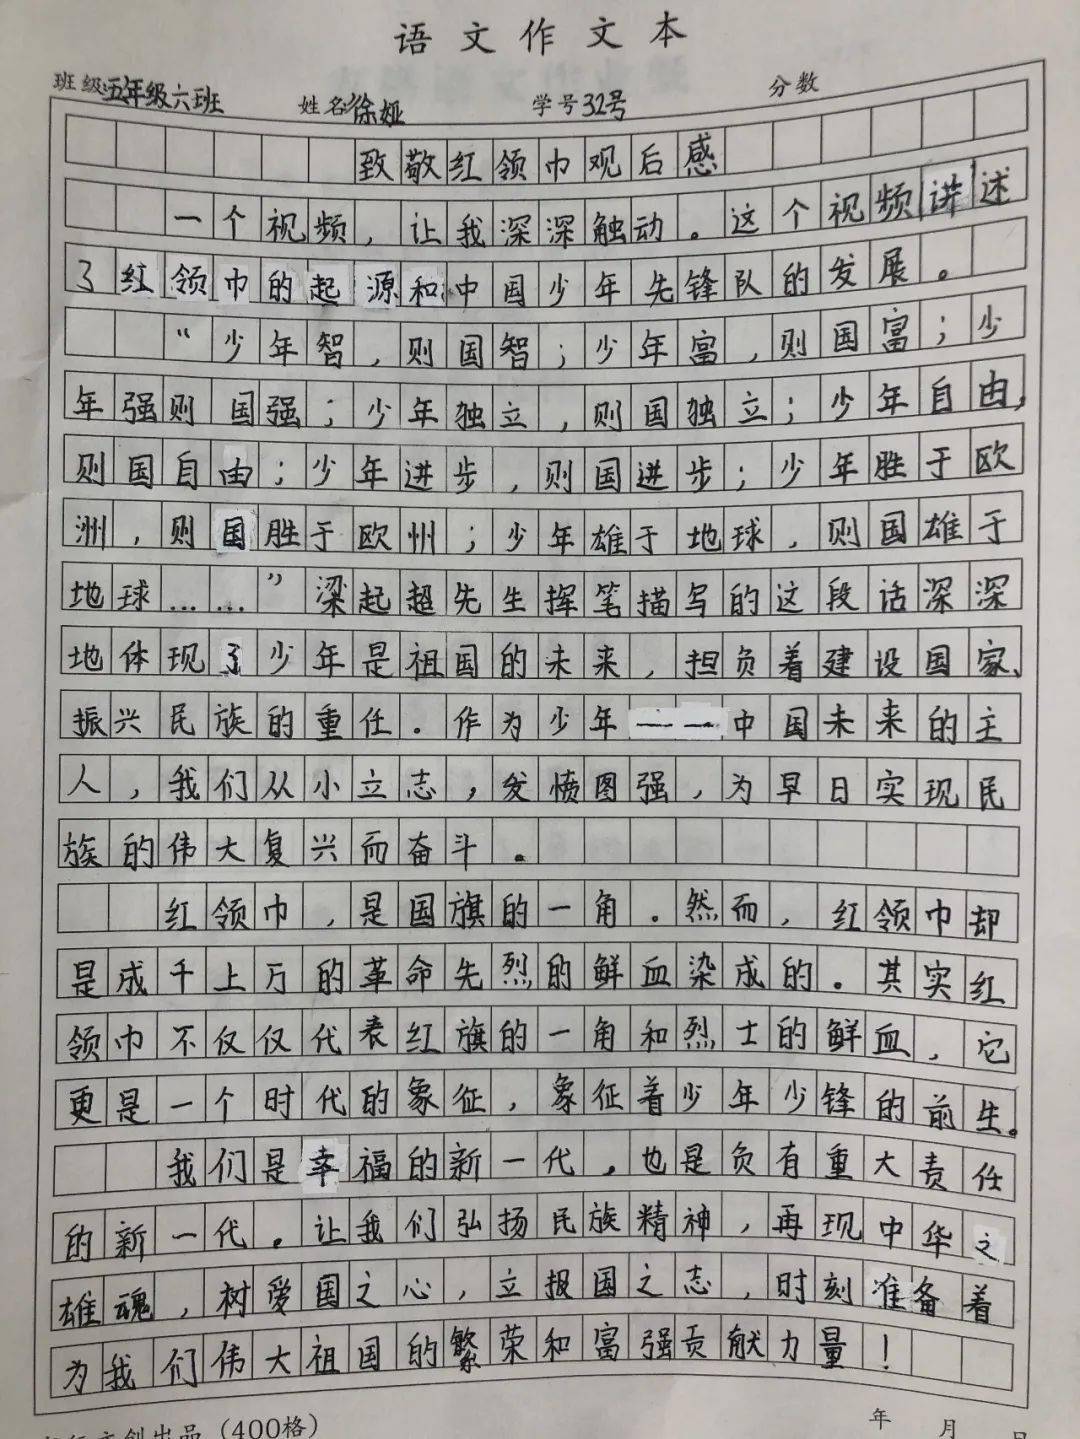 语文作文本
班级 五年级六班 姓名 徐娅 学号 32号 分数
致敬红领巾观后感
一个视频，让我深深触动。这个视频讲述
了红领巾的起源和中国少年先锋队的发展。
“少年智，则国智；少年富，则国富；少
年强则国强；少年独立，则国独立；少年自由，
则国自由；少年进步，则国进步；少年胜于欧
洲，则国胜于欧州；少年雄于地球，则国雄于
地球……”梁起超先生挥笔描写的这段话深深
地体现了少年是祖国的未来，担负着建设国家、
振兴民族的重任。作为少年——中国未来的主
人，我们从小立志，发愤图强，为早日实现民
族的伟大复兴而奋斗。
红领巾，是国旗的一角。然而，红领巾却
是成千上万的革命先烈的鲜血染成的。其实红
领巾不仅仅代表红旗的一角和烈士的鲜血，它
更是一个时代的象征，象征着少年少锋的前生。
我们是幸福的新一代，也是负有重大责任
的新一代。让我们弘扬民族精神，再现中华之
雄魂，树爱国之心，立报国之志，时刻准备着
为我们伟大祖国的繁荣和富强贡献力量！
文创出品（400格） 年 月 日